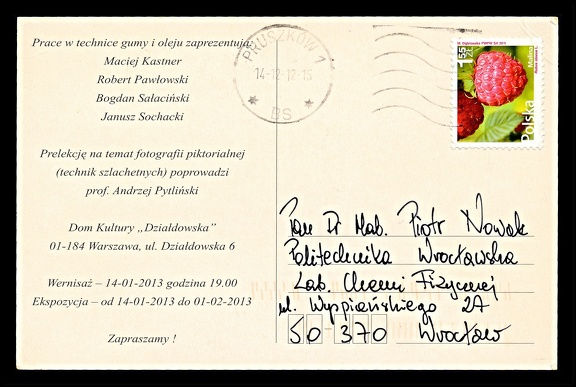 Prace w technice gumy i oleju zaprezentują:
Maciej Kastner
Robert Pawłowski
Bogdan Sałaciński
Janusz Sochacki
Prelekcję na temat fotografii piktorialnej
(technik szlachetnych) poprowadzi
prof. Andrzej Pytliński
Dom Kultury „Działdowska”
01-184 Warszawa, ul. Działdowska 6
Wernisaż – 14-01-2013 godzina 19.00
Ekspozycja – od 14-01-2013 do 01-02-2013
Zapraszamy !
PRUSZKÓW 1
14-12-12-15
DS
1,55
ZŁ
Malina
Polska
Pan Dr Hab. Piotr Nowak
Politechnika Wrocławska
Zakł. Chemii Fizycznej
ul. Wyspiańskiego 27
50-370 Wrocław